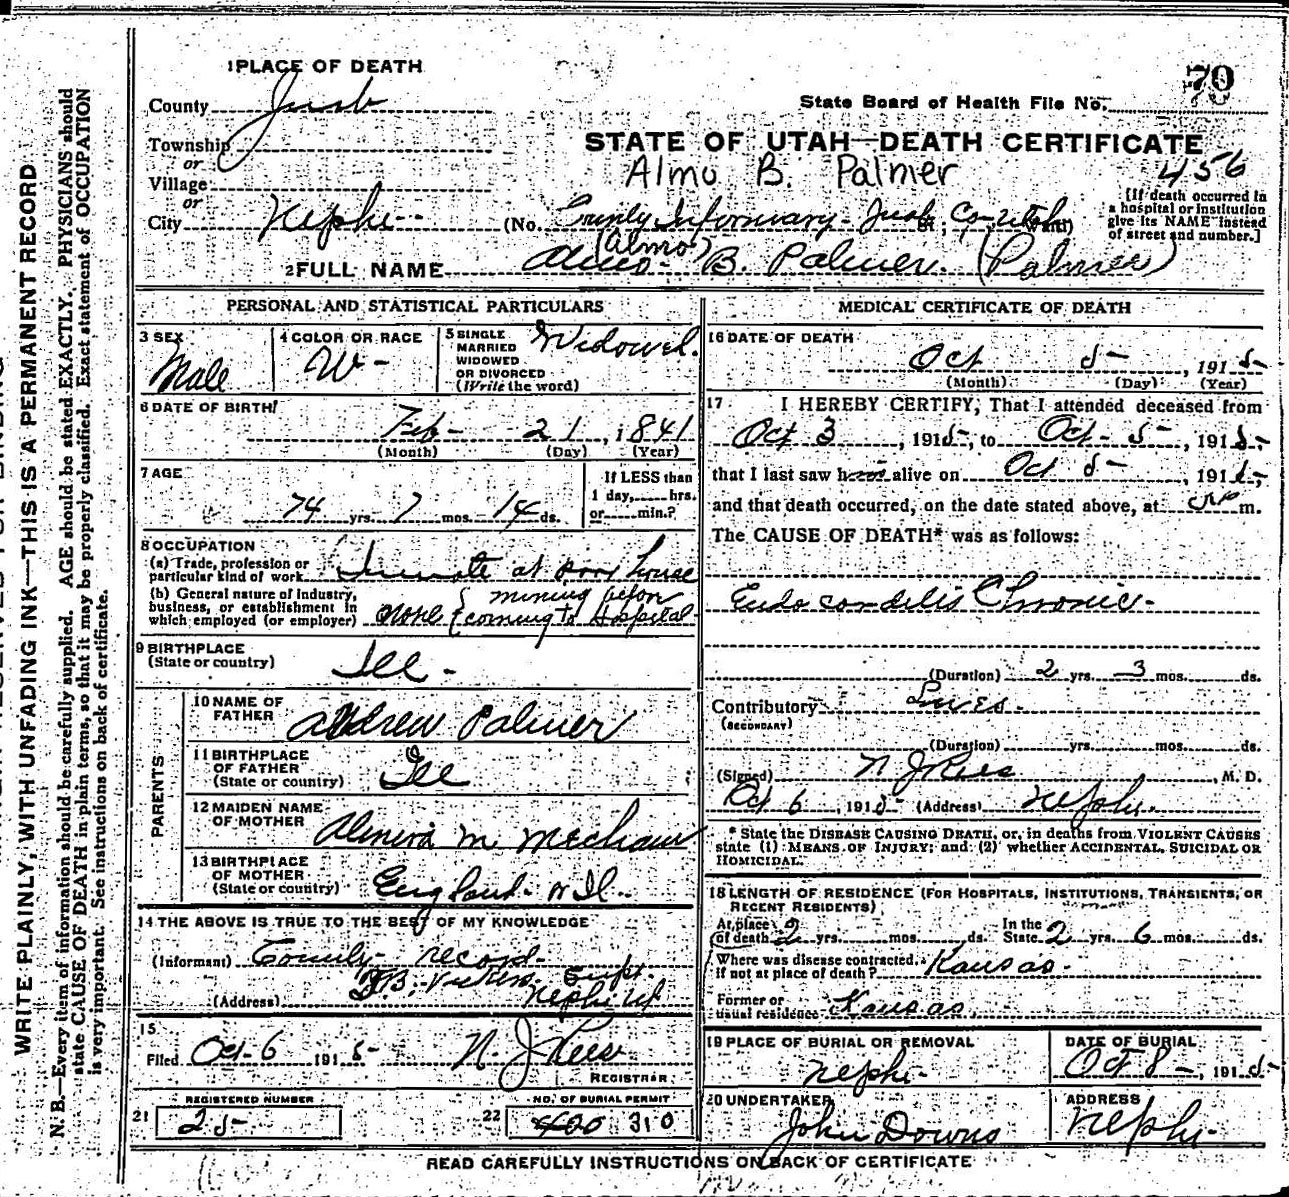 1 PLACE OF DEATH
County Juab
Township
or
Village
or
City Nephi
70
State Board of Health File No.
STATE OF UTAH—DEATH CERTIFICATE
Almo B. Palmer
456
(No. County Infirmary - Juab St.; Co. Utah Ward)
[If death occurred in
a hospital or institution
give its NAME instead
of street and number.]
(Almo)
2 FULL NAME B. Palmer. (Palmer)
PERSONAL AND STATISTICAL PARTICULARS
3 SEX
Male
4 COLOR OR RACE
W-
5 SINGLE
MARRIED
WIDOWED
OR DIVORCED
(Write the word)
Widowed.
6 DATE OF BIRTH
Feb- 21, 1841
(Month) (Day) (Year)
7 AGE
74 yrs. 7 mos. 14 ds.
If LESS than
1 day, hrs.
or min.?
8 OCCUPATION
(a) Trade, profession or
particular kind of work
Inmate at poor house
(b) General nature of industry,
business, or establishment in
which employed (or employer)
None { mining before
coming to Hospital
9 BIRTHPLACE
(State or country)
Ill-
PARENTS
10 NAME OF
FATHER
Andrew Palmer
11 BIRTHPLACE
OF FATHER
(State or country)
Ill
12 MAIDEN NAME
OF MOTHER
Almira M. Mecham
13 BIRTHPLACE
OF MOTHER
(State or country)
England.
14 THE ABOVE IS TRUE TO THE BEST OF MY KNOWLEDGE
(Informant) County record.
Supt.
(Address) Nephi Ut
15
Filed Oct-6 1915- N. J. Rees
REGISTRAR
REGISTERED NUMBER
21 25-
NO. OF BURIAL PERMIT
22 400 310
MEDICAL CERTIFICATE OF DEATH
16 DATE OF DEATH
Oct 5-, 1915-
(Month) (Day) (Year)
17 I HEREBY CERTIFY, That I attended deceased from
Oct 3, 1915-, to Oct- 5-, 1915-
that I last saw him alive on Oct 5-, 1915-,
and that death occurred, on the date stated above, at m.
The CAUSE OF DEATH* was as follows:
Endo cardelis Chronic-
(Duration) 2 yrs. 3 mos. ds.
Contributory
(SECONDARY)
(Duration) yrs. mos. ds.
(Signed) N J Rees, M. D.
Oct 6, 1915- (Address) Nephi.
* State the DISEASE CAUSING DEATH, or, in deaths from VIOLENT CAUSES
state (1) MEANS OF INJURY; and (2) whether ACCIDENTAL, SUICIDAL OR
HOMICIDAL.
18 LENGTH OF RESIDENCE (FOR HOSPITALS, INSTITUTIONS, TRANSIENTS, OR
RECENT RESIDENTS)
At place
of death 2 yrs. mos. ds. In the
State 2 yrs. 6 mos. ds.
Where was disease contracted,
if not at place of death? Kansas.
Former or
usual residence Kansas.
19 PLACE OF BURIAL OR REMOVAL
Nephi-
DATE OF BURIAL
Oct 8-, 1915-
20 UNDERTAKER
John Downs
ADDRESS
Nephi-
READ CAREFULLY INSTRUCTIONS ON BACK OF CERTIFICATE
WRITE PLAINLY, WITH UNFADING INK—THIS IS A PERMANENT RECORD
N. B.—Every item of information should be carefully supplied. AGE should be stated EXACTLY. PHYSICIANS should
state CAUSE OF DEATH in plain terms, so that it may be properly classified. Exact statement of OCCUPATION
is very important. See instructions on back of certificate.